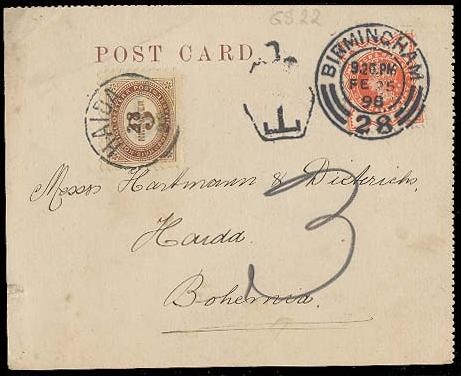 GS.22
POST CARD
BIRMINGHAM
9.20 PM
FE 25
98
28
HAIDA
T
3
Messrs Hartmann & Dieterichs,
Haida.
Bohemia.